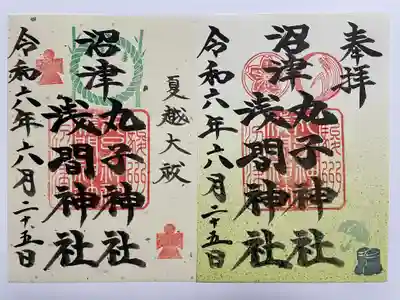 奉拝
沼津
丸子神社
浅間神社
令和六年六月二十五日
夏越大祓
沼津
丸子神社
浅間神社
令和六年六月二十五日